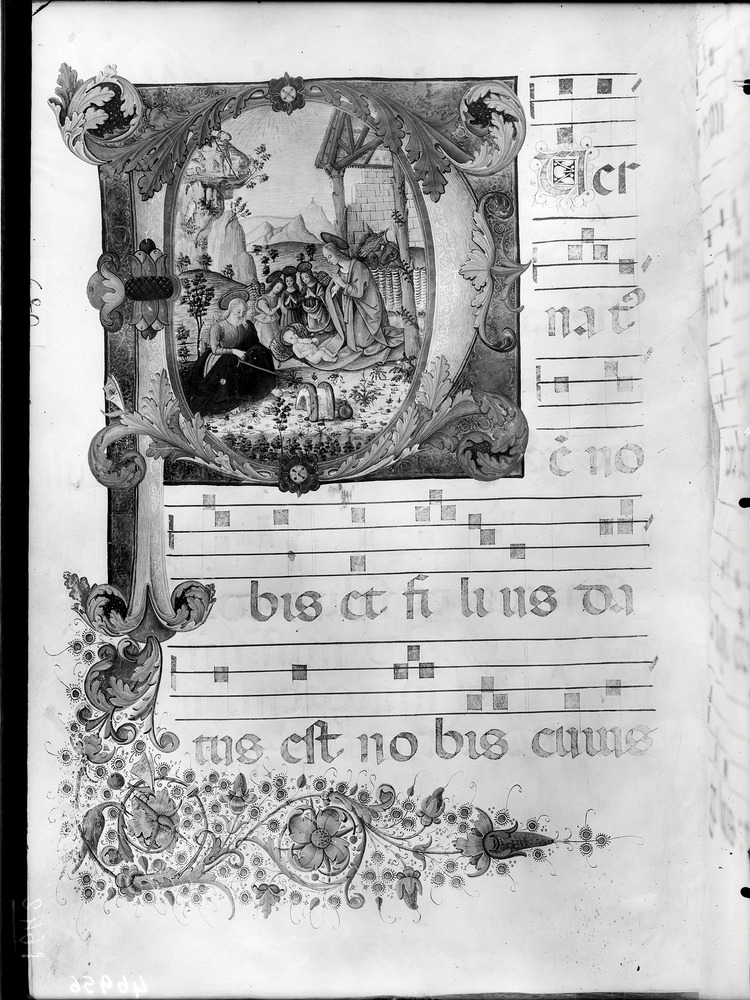 P Uer
nat9
ē no
bis et fi li us da
tus est no bis cuius
46956